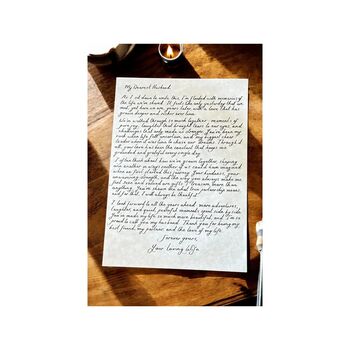 My Dearest Husband,
As I sit down to write this, I'm flooded with memories of
the life we've shared. It feels like only yesterday that we
met, yet here we are, years later, with a love that has
grown deeper and richer over time.
We've walked through so much together - moments of
pure joy, laughter that brought tears to our eyes, and
challenges that only made us stronger. You've been my
rock when life felt uncertain, and my biggest cheer
leader when it was time to chase our dreams. Through it
all, your love has been the constant that keeps me
grounded and grateful every single day.
I often think about how we've grown together, shaping
one another in ways neither of us could have imagined
when we first started this journey. Your kindness, your
unwavering strength, and the way you always make me
feel seen and valued are gifts I treasure more than
anything. You've shown me what true partnership means,
and for that, I will always be thankful.
I look forward to all the years ahead: more adventures,
laughter, and quiet, peaceful moments spent side by side.
You've made my life so much more beautiful, and I'm so
proud to call you my husband. Thank you for being my
best friend, my partner, and the love of my life.
Forever yours,
Your loving Wife